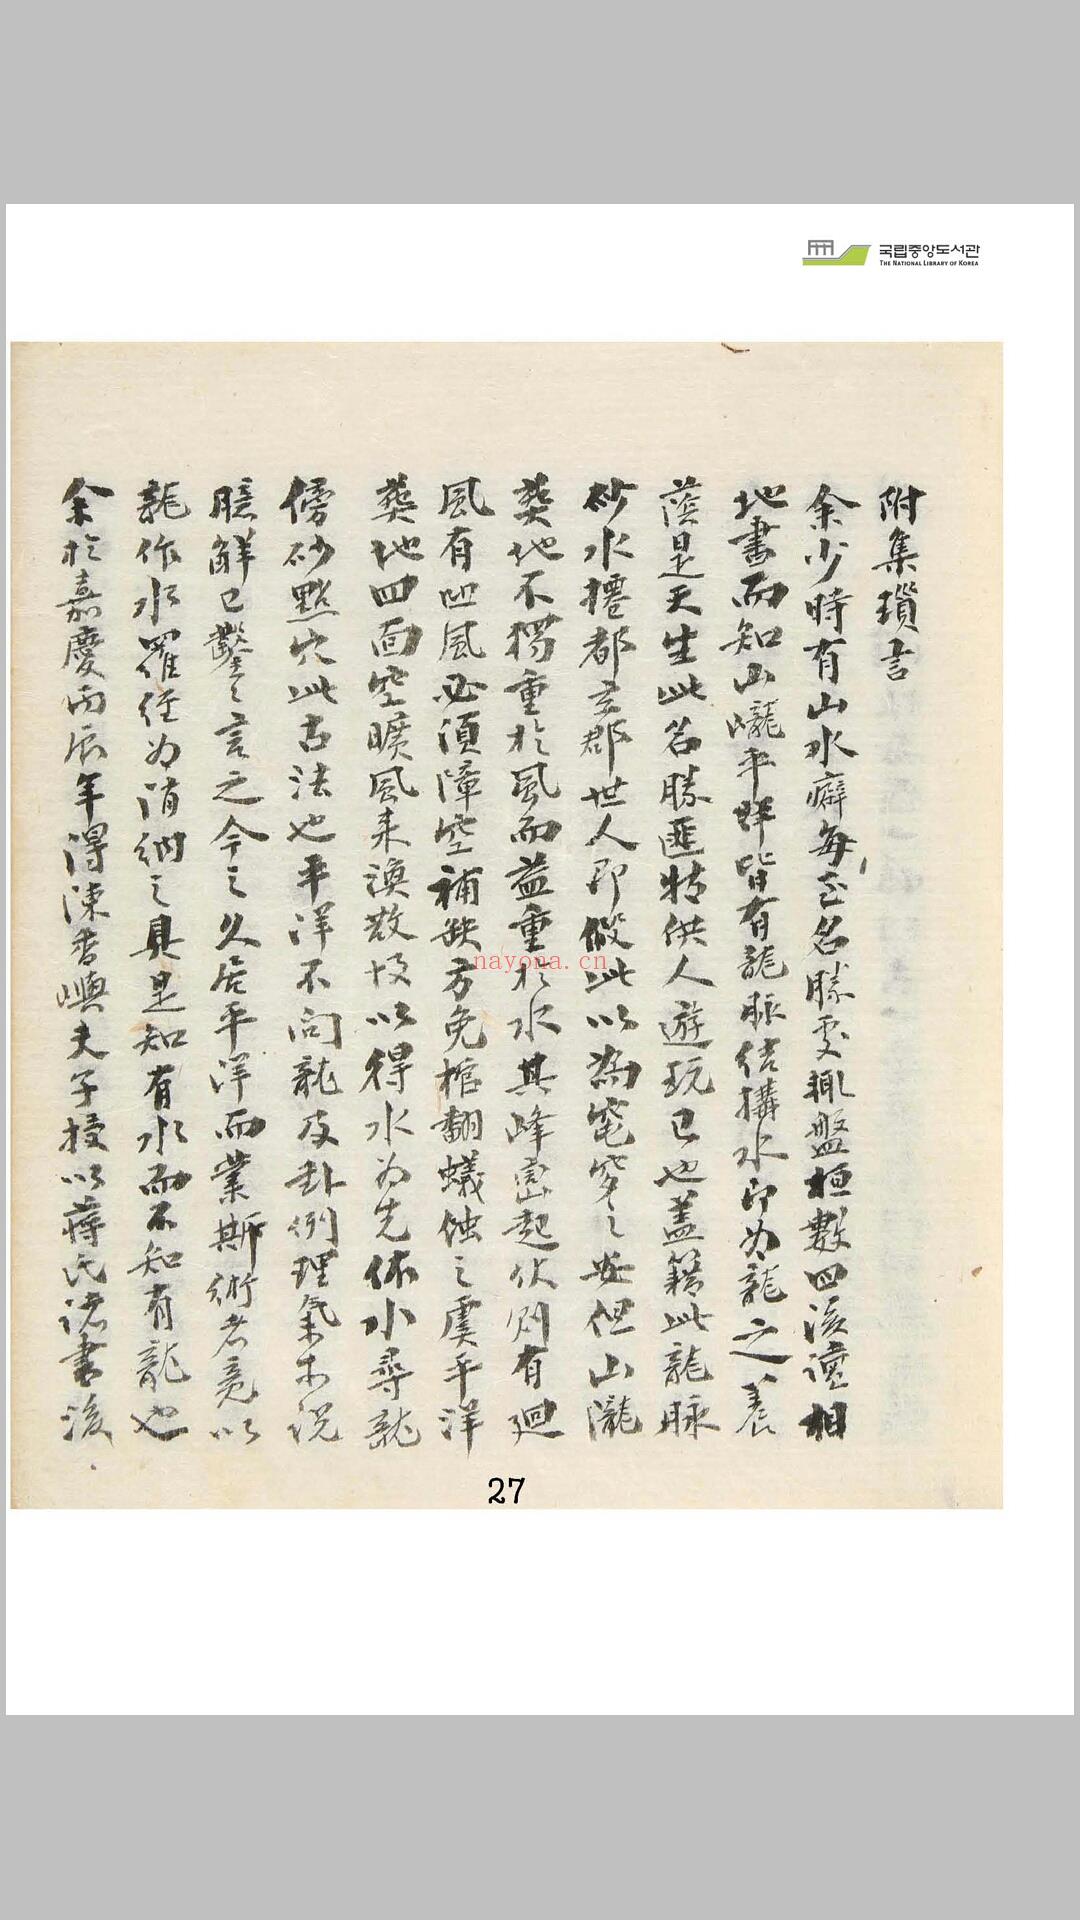 국립중앙도서관
THE NATIONAL LIBRARY OF KOREA
附集瑣言
余少時有山水癖每至名勝處輒盤桓數四後讀相
地書而知山巄平垟皆有龍脈結搆水即为龍之養
蔭是天生此名勝匪特供人遊玩已也蓋籍此龍脈
砂水遷都立郡世人即假此以為窀穸之安但山隴
葬地不獨重於風而益重於水其峰巒起伏則有廻
風有凹風必須障空補缺方免棺翻蟻蝕之虞平洋
葬地四面空曠風来渙散故以得水为先依水尋龍
傍砂點穴此古法也平洋不问龍及卦例理氣本说
臆觧已鑿〻言之今之久居平洋而業斯術者竟以
龍作水羅径为消納之具是知有水而不知有龍也
余於嘉慶丙辰年得陳香嶼夫子授以蔣氏诸書後
nayona.cn
27